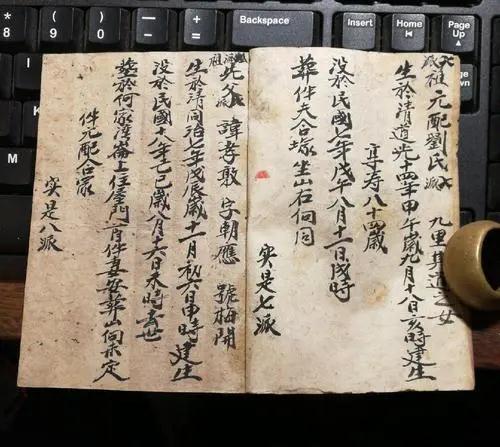 * 8
( 9
) 0
Backspace
Insert
Home
Page Up
End
Page Down
祖元配劉氏派 九里其道之女
生於清道光十四年甲午歲九月十八亥時建生
享寿八十四歲
没於民國七年戊午八月十一日戌時
葬伴夫合塚坐山石向同
实是七派
祖先父 諱孝敦 字朝應 號梅開
生於清同治七年戊辰歲十一月初六日申時建生
没於民國十八年己巳歲八月十六日未時去世
塟於何家湾上住屋門首伴妻安葬山向未定
伴元配合冢
实是八派